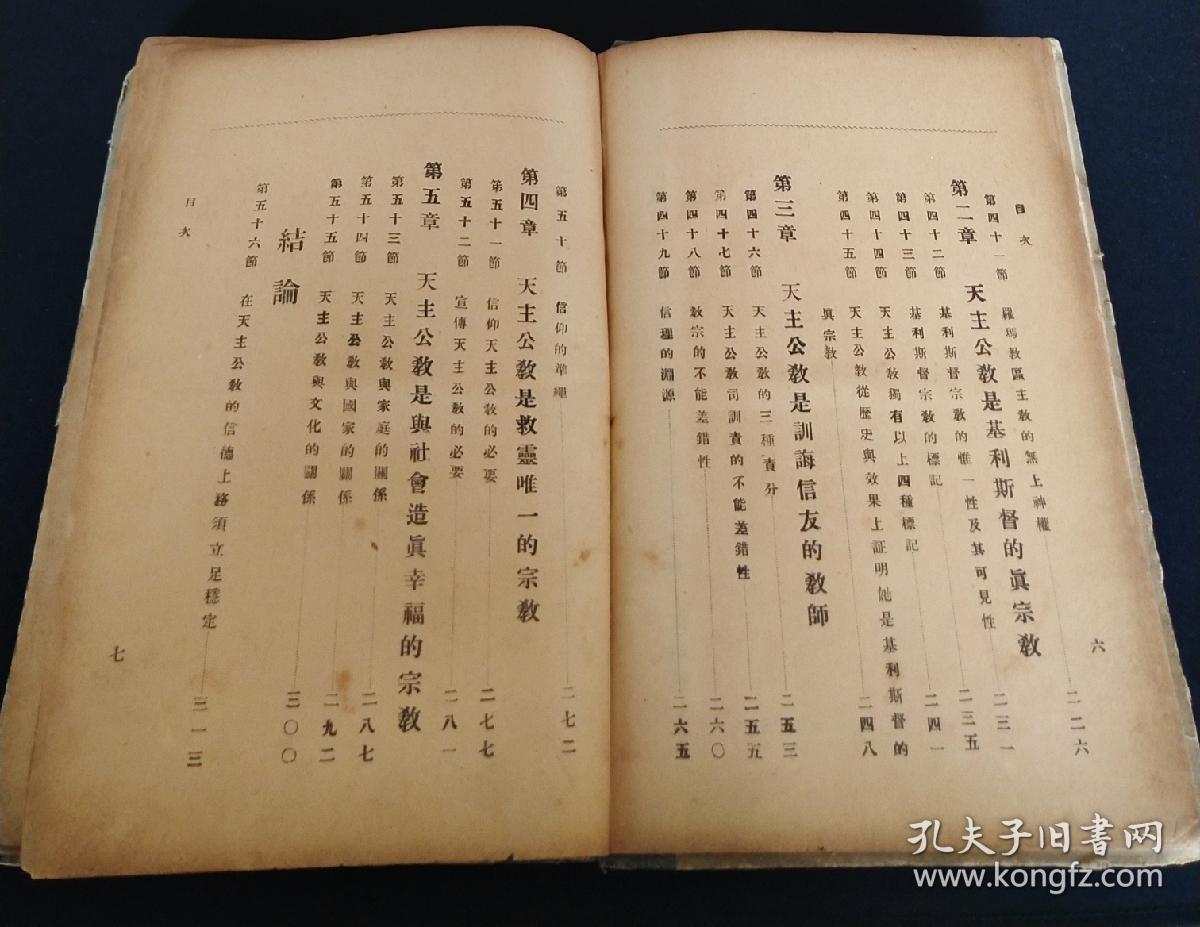 目次
六
第四十一節　羅瑪教區主教的無上神權　二二六
第二章　天主公教是基利斯督的眞宗教
第四十二節　基利斯督宗教的惟一性及其可見性　二三一
第四十三節　基利斯督宗教的標記　二三五
第四十四節　天主公教獨有以上四種標記　二四一
第四十五節　天主公教從歷史與效果上証明她是基利斯督的
眞宗教　二四八
第三章　天主公教是訓誨信友的教師
第四十六節　天主公教的三種責分　二五三
第四十七節　天主公教司訓責的不能差錯性　二五五
第四十八節　教宗的不能差錯性　二六〇
第四十九節　信理的淵源　二六五
第五十節　信仰的準繩　二七二
第四章　天主公教是救靈唯一的宗教
第五十一節　信仰天主公教的必要　二七七
第五十二節　宣傳天主公教的必要　二八一
第五章　天主公教是與社會造眞幸福的宗教
第五十三節　天主公教與家庭的關係　二八七
第五十四節　天主公教與國家的關係　二九二
第五十五節　天主公教與文化的關係　三〇〇
結論
第五十六節　在天主公教的信德上務須立足穩定　三一三
目次
七
孔夫子旧书网
www.kongfz.com